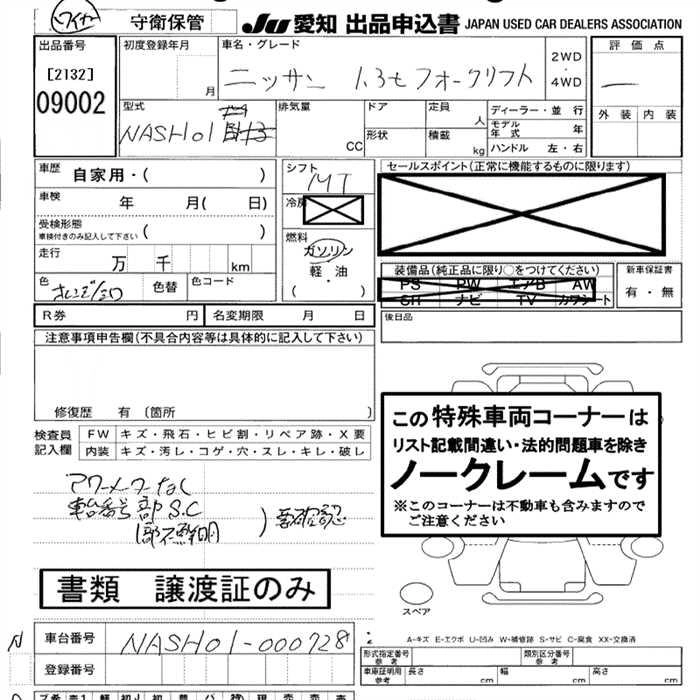 守衛保管
JU 愛知 出品申込書 JAPAN USED CAR DEALERS ASSOCIATION
出品番号
[2132]
09002
初度登録年月
月
車名・グレード
ニッサン 1.3t フォークリフト
2WD
・
4WD
評価点
一
外装 内装
型式
NASH01
排気量
CC
ドア
形状
定員
人
積載
kg
ディーラー・並行
モデル年式 年
ハンドル 左・右
車歴
自家用・( )
車検
年 月( 日)
受検形態
車検付きのみ記入して下さい ( )
走行
万 千 km
色
色替
色コード
R券 円
名変期限 月 日
シフト
MT
冷房
燃料
ガソリン
軽・油
( )
セールスポイント(正常に機能するものに限ります)
装備品(純正品に限り○をつけてください)
PS PW エアB AW
SR ナビ TV カワシート
新車保証書
有・無
後日品
注意事項申告欄(不具合内容等は具体的に記入して下さい)
修復歴 有 〔箇所 〕
検査員記入欄
FW キズ・飛石・ヒビ割・リペア跡・X要
内装 キズ・汚レ・コゲ・穴・スレ・キレ・破レ
アワーメーターなし
車台番号部 S.C
1部不鮮明
要確認
この特殊車両コーナーは
リスト記載間違い・法的問題車を除き
ノークレームです
※このコーナーは不動車も含みますので
ご注意ください
スペア
書類 譲渡証のみ
A-キズ E-エクボ U-凹み W-補修跡 S-サビ C-腐食 XX-交換済
N
車台番号
NASH01-000728
登録番号
形式指定番号
参考
類別区分番号
参考
車庫証明用
参考
長さ
幅
高さ